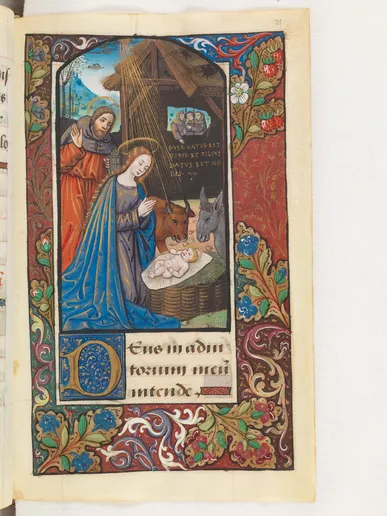 PVER NATVS EST
NOBIS ET FILIVS
DATVS EST NO
BIS
Deus in adiu
torium meū
intende.